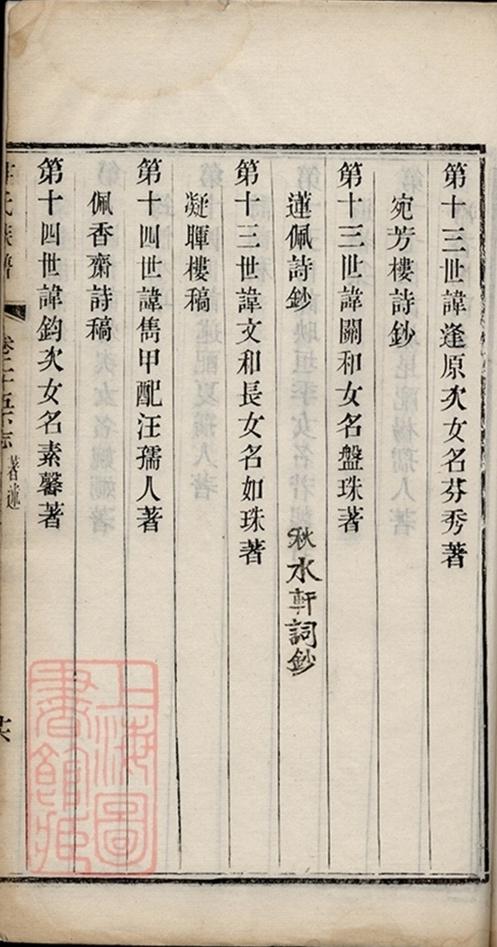 第十三世諱逢原次女名芬秀著
宛芳樓詩鈔
第十三世諱關和女名盤珠著
蓮佩詩鈔 秋水軒詞鈔
第十三世諱文和長女名如珠著
凝暉樓稿
第十四世諱雋甲配汪孺人著
佩香齋詩稿
第十四世諱鈞次女名素馨著
氏族譜
著述
上海圖
書館藏